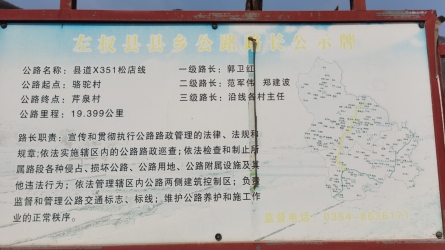 左权县县乡公路路长公示牌
公路名称：县道X351松店线 一级路长：郭卫红
公路起点：骆驼村 二级路长：范军伟 郑建波
公路终点：芹泉村 三级路长：沿线各村主任
公路里程：19.399公里
路长职责：宣传和贯彻执行公路路政管理的法律、法规和
规章;依法实施辖区内的公路路政巡查；依法检查和制止所
属路段各种侵占、损坏公路、公路用地、公路附属设施及其
他违法行为；依法管理辖区内公路两侧建筑控制区；负责
监督和管理公路交通标志、标线；维护公路养护和施工作
业的正常秩序。
监督电话：0354-8630171